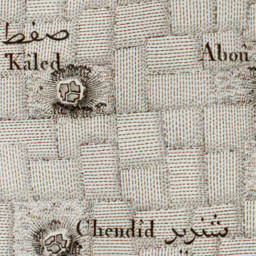 صفط
Kâled
Aboû
Chendîd شندید